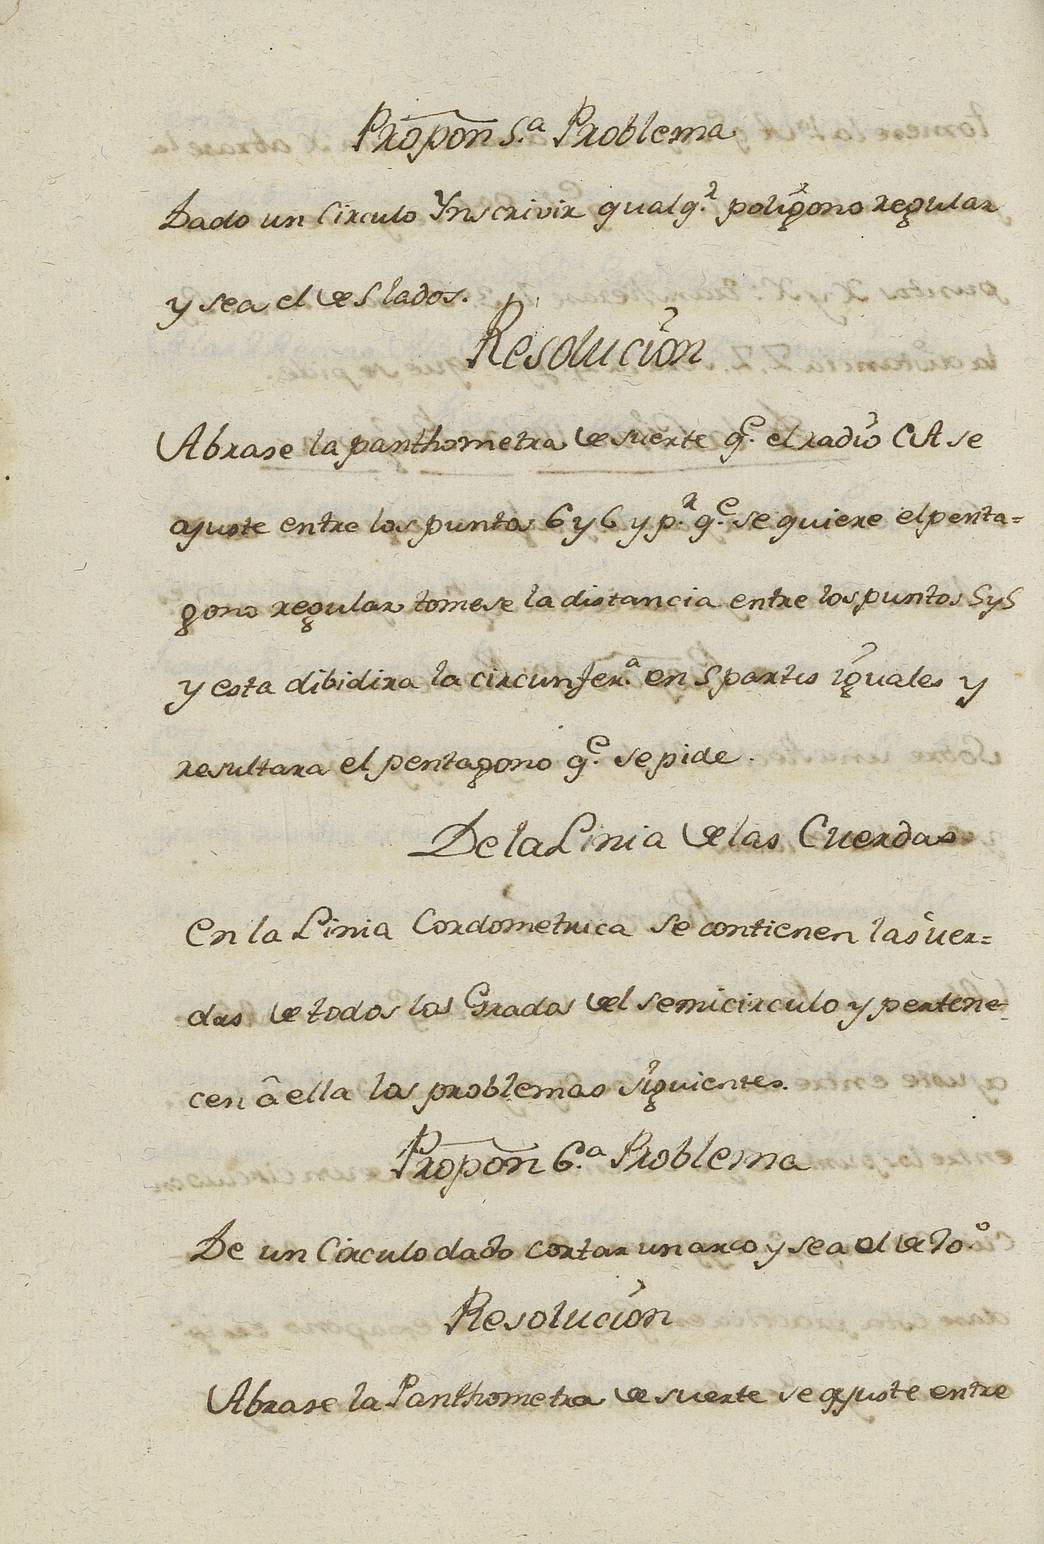 Propon 5.ª Problema
Dado un Circulo Ynscrivir qualq.r poligono regular
y sea el de 5 lados.
Resolucion
Abrase la panthometra de suerte q.e el radio CA se
ajuste entre los puntos 6 y 6 y p.r q.e se quiere el penta=
gono regular tomese la distancia entre los puntos 5 y 5
y esta dibidira la circunfer.a en 5 partes iguales y
resultara el pentagono q.e se pide.
De la Linia de las Cuerdas
En la Linia Cordometrica se contienen las cuer=
das de todos los Grados del semicirculo y pertene-
cen â ella los problemas siguientes.
Propon 6.ª Problema
De un Circulo dado cortar un arco y sea el de 70.º
Resolucion
Abrase la Panthometra de suerte se ajuste entre